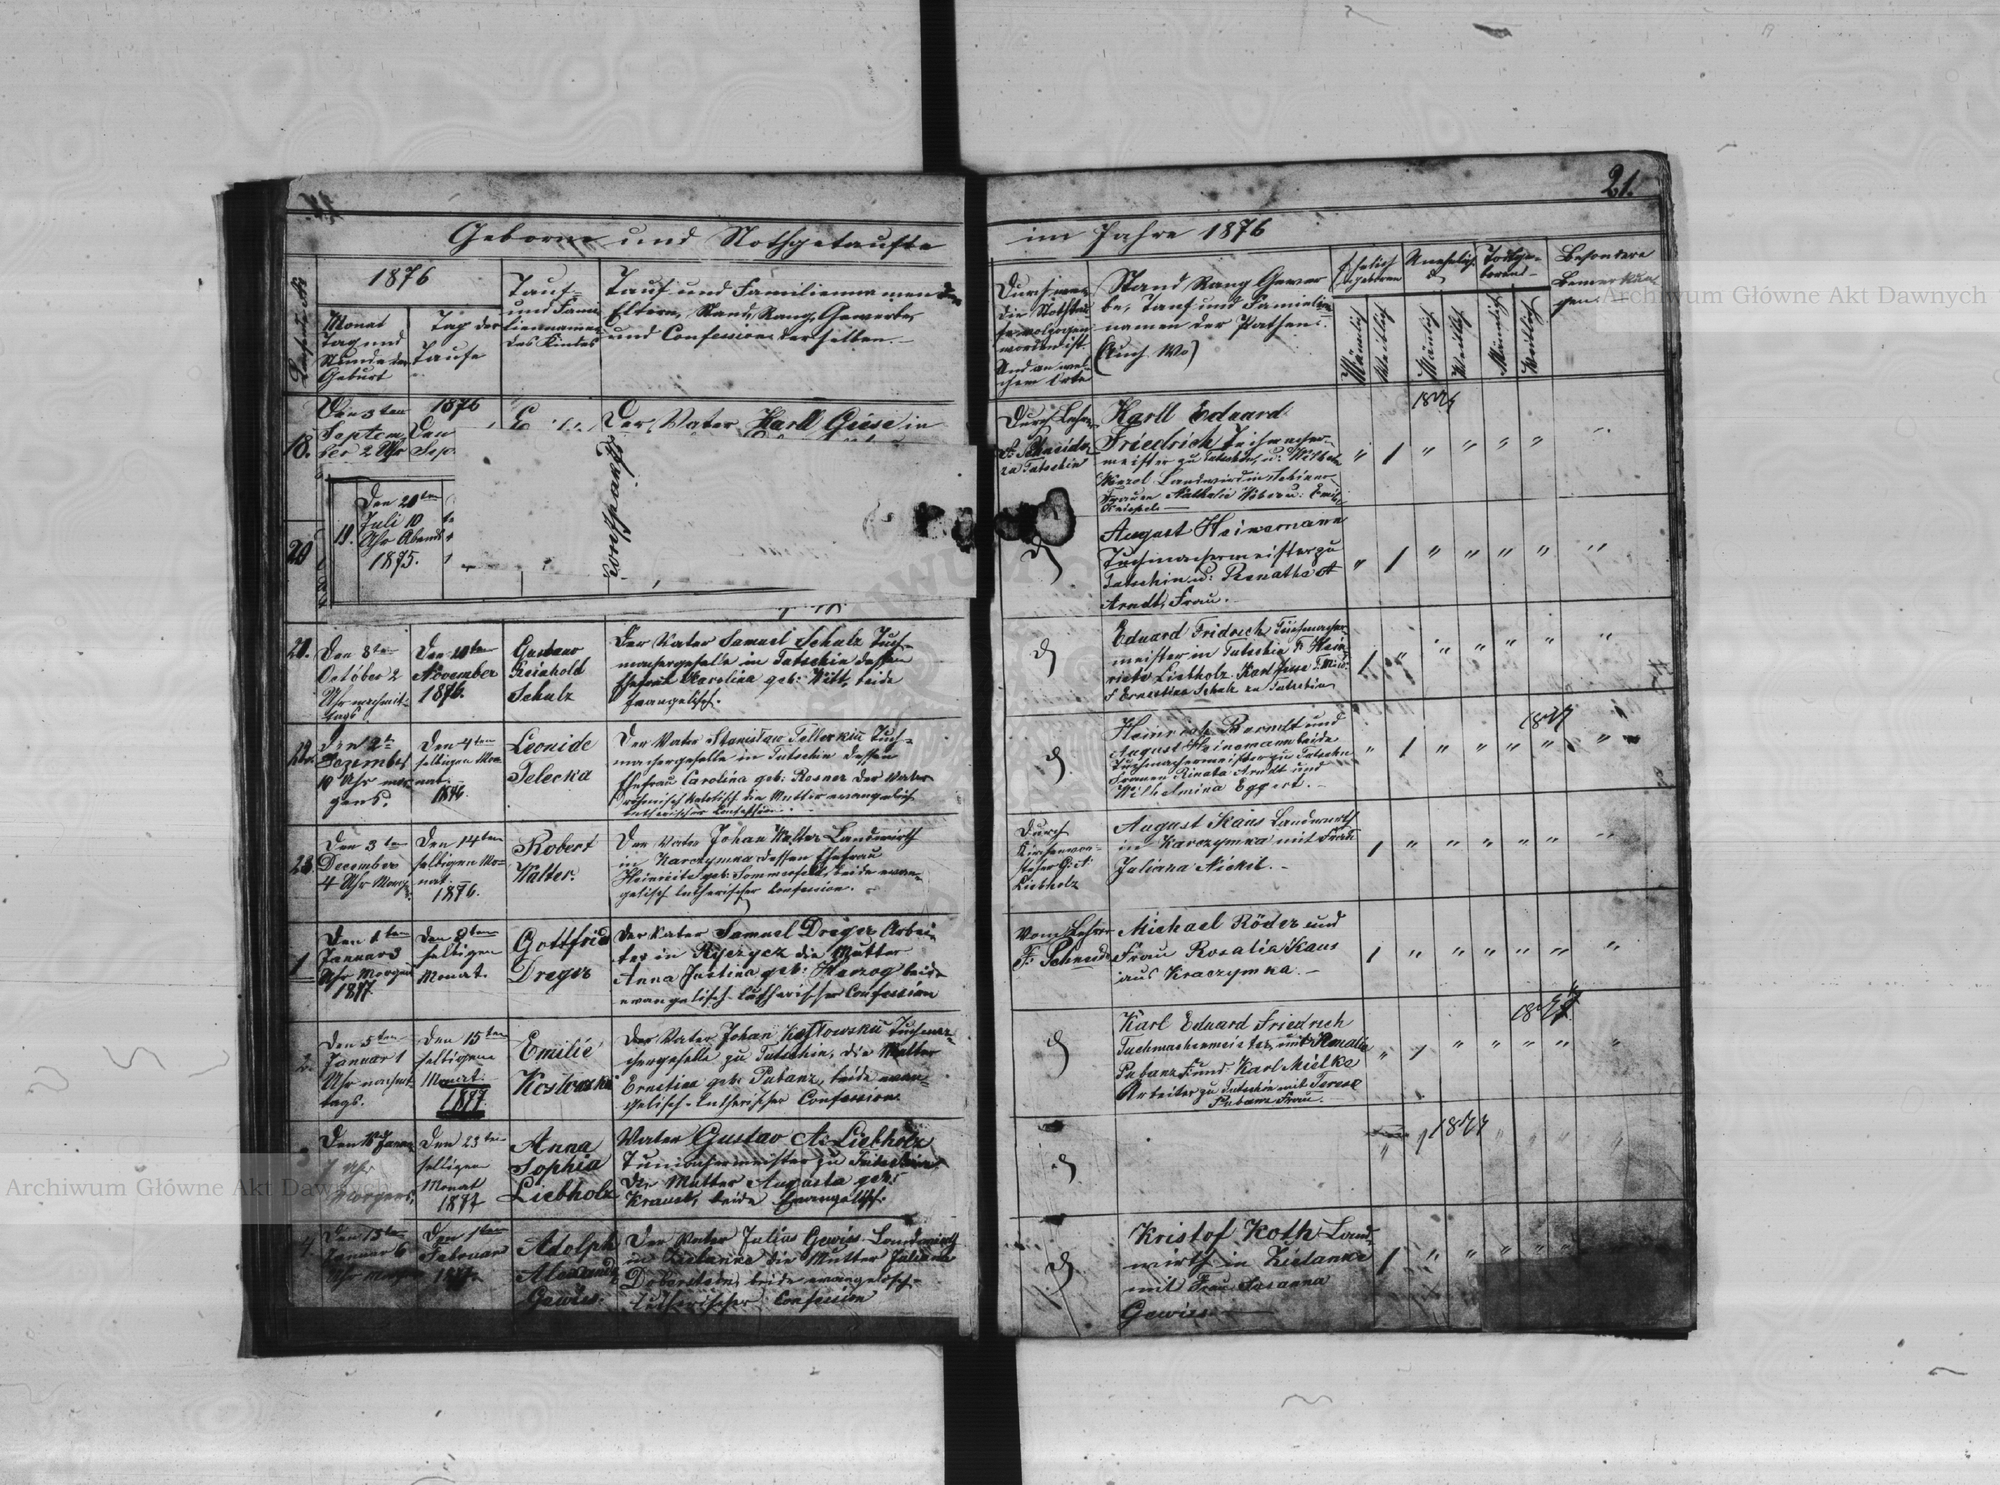 21.
Geborne und Nothgetaufte
im Jahre 1876
1876
Monat
Tag und
Stunde der
Geburt
Tag der
Taufe
Tauf-
und Fami-
liennamen
des Kindes
Tauf und Familiennamen der
Eltern, Stand, Rang, Gewerbe,
und Confession derselben.
Durch wen
die Nothtau-
fe vollzogen
worden ist
Und an wel-
chem Orte
Stand Rang Gewer
be, Tauf und Familien
namen der Pathen.
(Auch Wo)
Ehelich
geboren
Unehelich
Todtge-
borene
Besondere
Bemerkun
gen
Männlich
Weiblich
Männlich
Weiblich
Männlich
Weiblich
18.
Den 3ten
Septem
ber 2 Uhr
1876
Den
Sep
Der Vater Karll Giese in
19.
Den 20ten
Juli 10
Uhr Abends
1875.
20
Durch Lehr
F. Schneider
zu Tutschin
Karll Eduard
Friedrich
meister zu Tutschin, u: Wilhelm
August Heinemann
Tuchmachermeister zu
Tutschin u: Renatha A
Arndt, Frau.
21.
Den 8ten
October 2
Uhr nachmit-
tags
Den 10ten
November
1876.
Gustaw
Reinhold
Schulz
Der Vater Samuel Schulz Tuch-
machergeselle in Tutschin dessen
Ehefrau Karolina geb: Witt, beide
Evangelisch.
Eduard Fridrich Tuchmacher
meister in Tutschin F. Hein
riete Liebholz Karl
F Ernestine Schulz zu Tutschin
22.
Den 2te
Dezember
10 Uhr mor
gens.
Den 4ten
selbigen Mo
nat.
1876.
Leonide
Telecka
Der Vater Stanislaw Tellerkii Tuch-
machergeselle in Tutschin dessen
Ehefrau Carolina geb: Rosner der Vater
römisch katolisch die Mutter evangelisch
lutherischer Confession.
Heinrich Berndt und
August Heinemann beide
Tuchmachermeister zu Tutschin
Frauen Rinata Arndt und
Wilhelmina Eggert.
1877
23.
Den 3ten
December
4 Uhr Morg
Den 14ten
selbigen Mo-
nat.
1876.
Robert
Walter.
Der Vater Johan Walter Landwirth
in Karczymka dessen Ehefrau
Heinriete geb: Sommerfeld, beide evan-
gelisch lutherischer Confession.
Durch
Kirchenvor-
steher G: A:
Liebholz
August Kaus Landwirth
in Karczymka mit Frau
Juliana Nickel.
1
Den 1ten
Januar 3
Uhr Morgens
1877
Den 9ten
selbigen
Monat.
Gottfried
Dreger
Der Vater Samuel Dreger Arbei
ter in Ryczycz die Mutter
Anna Justina geb: Herzog beide
evangelisch-lutherischer Confession
Vom Lehrer
F. Schneider
Michael Röder und
Frau Rosalia Kaus
aus Kraczymka.
2.
Den 5ten
Januar 1
Uhr nachmit
tags.
Den 15ten
selbigen
Monat.
1877.
Emilie
Kostowski
Der Vater Johan Kostowskii Tuchma-
chergeselle zu Tutschin, die Mutter
Ernstina geb: Pubanz, beide evan-
gelisch-lutherischer Confession.
Karl Eduard Friedrich
Tuchmachermeister, mit Amalie
Pubanz F: und Karl Mielke
Arbeiter zu Tutschin mit Terese
Pubanz Frau.
1877
3
Morgens.
Den 23ten
selbigen
Monat
1877
Anna
Sophia
Liebholz
Vater Gustav A: Liebholz
Tuchmachermeister zu Tutschin,
Die Mutter Augusta geb:
Krause, beide Evangelisch.
1877
4.
Den 13ten
Januar 6
Uhr morgens
Den 1ten
Februar
1877.
Adolph
Alexander
Gewiss.
Der Vater Julius Gewiss Landwirth
in Zielanke die Mutter Juliana
Doberstein, beide evangelisch-
lutherischer Confession
Kristof Koth Land-
wirth in Zielanke
mit Frau Susanna
Gewiss
Archiwum Główne Akt Dawnych
Archiwum Główne Akt Dawnych